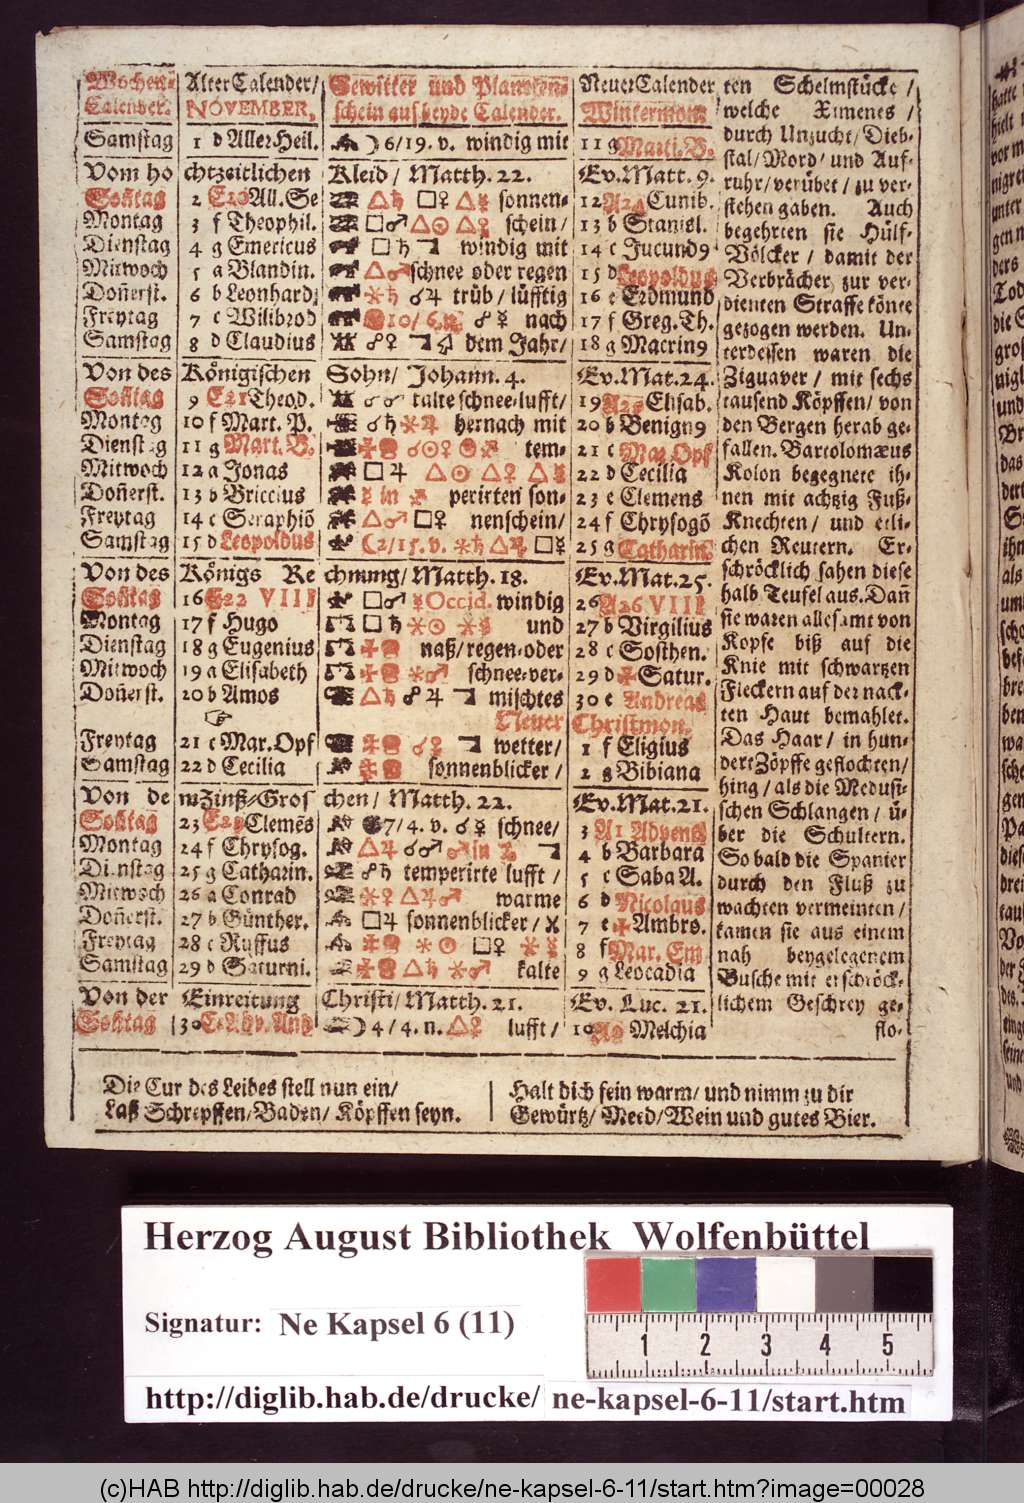 Wochen- Alter Calender/ Gewitter und Planeten- Neuer Calender
Calender. NOVEMBER. schein auf beyde Calender. Wintermon.
Samstag 1 d Aller Heil. ☽ 6/19. v. windig mit 11 g Marti. B.
Vom hochtzeitlichen Kleid/ Matth. 22. Ev. Matt. 9.
Sontag 2 E20 All. Se △♄ □♀ △☿ sonnen- 12 A24 Cunib.
Montag 3 f Theophil. □♂ △☉ △♀ schein/ 13 b Stanisl.
Dienstag 4 g Emericus □♄ windig mit 14 c Jucund9
Mitwoch 5 a Blandin. △♂ schnee oder regen 15 d Leopoldus
Doñerst. 6 b Leonhard; ⚹♄ ☌♃ trüb/ lüfftig 16 e Erdmund
Freytag 7 c Wilibrod 10/6. n. ☍☿ nach 17 f Greg. Th.
Samstag 8 d Claudius ☍♀ dem Jahr/ 18 g Macrin9
Von des Königischen Sohn/ Johann. 4. Ev. Mat. 24.
Sontag 9 E21 Theod. ☍♂ kalte schnee-lufft/ 19 A25 Elisab.
Montag 10 f Mart. P. ☌♄ ⚹♃ hernach mit 20 b Benign9
Dienstag 11 g Mart. B. ☌☉♀ tem- 21 c Mar. Opf
Mitwoch 12 a Jonas □♃ △☉ △♀ △☿ 22 d Cecilia
Doñerst. 13 b Briccius ☿ in ♐ perirten son- 23 e Clemens
Freytag 14 c Seraphiō △♂ □♀ nenschein/ 24 f Chrysogō
Samstag 15 d Leopoldus ☾ 2/15. v. ⚹♄ △♃ □☿ 25 g Catharin.
Von des Königs Rechnung/ Matth. 18. Ev. Mat. 25.
Sontag 16 E22 VIII □♂ ☿ Occid. windig 26 A26 VIII
Montag 17 f Hugo □♄ ⚹☉ ⚹☿ und 27 b Virgilius
Dienstag 18 g Eugenius naß/ regen-oder 28 c Sosthen.
Mitwoch 19 a Elisabeth ⚹♂ schnee-ver- 29 d Satur.
Doñerst. 20 b Amos △♄ ☍♃ mischtes 30 e Andreas
☞ Neuer Christmon.
Freytag 21 c Mar. Opf ☌♀ wetter/ 1 f Eligius
Samstag 22 d Cecilia sonnenblicker/ 2 g Bibiana
Von dem Zinß-Groschen/ Matth. 22. Ev. Mat. 21.
Sontag 23 E23 Clemēs 7/4. v. ☌☿ schnee/ 3 A1 Advent
Montag 24 f Chrysog. △♃ ☌♂ ♂ in 4 b Barbara
Dienstag 25 g Catharin. ☍♄ temperirte lufft/ 5 c Saba A.
Mitwoch 26 a Conrad ⚹♀ △♃♂ warme 6 d Nicolaus
Doñerst. 27 b Günther. □♃ sonnenblicker/ 7 e Ambro.
Freytag 28 c Ruffus ⚹☉ □♀ ⚹☿ 8 f Mar. Em
Samstag 29 d Saturni. △♄ ⚹♂ kalte 9 g Leocadia
Von der Einreitung Christi/ Matth. 21. Ev. Luc. 21.
Sontag 30 ☽ 4/4. n. △♀ lufft/ 10 Melchia
ten Schelmstücke/
welche Ximenes/
durch Unzucht/ Dieb-
stal/ Mord/ und Auf-
ruhr/ verübet/ zu ver-
stehen gaben. Auch
begehrten sie Hülf-
Völcker/ damit der
Verbrächer zur ver-
dienten Straffe könte
gezogen werden. Un-
terdessen waren die
Ziguaver/ mit sechs
tausend Köpffen/ von
den Bergen herab ge-
fallen. Bartolomæus
Kolon begegnete ih-
nen mit achtzig Fuß-
Knechten/ und etli-
chen Reutern. Er-
schröcklich sahen diese
halb Teufel aus. Dañ
sie waren allesamt von
Kopfe biß auf die
Knie mit schwartzen
Fleckern auf der nack-
ten Haut bemahlet.
Das Haar/ in hun-
dert Zöpffe geflochten/
hing/ als die Medusi-
schen Schlangen/ ü-
ber die Schultern.
So bald die Spanier
durch den Fluß zu
wachten vermeinten/
kamen sie aus einem
nah beygelegenem
Busche mit erschröck-
lichem Geschrey ge-
flo-
Die Cur des Leibes stell nun ein/
Laß Schrepffen/ Baden/ Köpffen seyn.
Halt dich fein warm/ und nimm zu dir
Gewürtz/ Meed/ Wein und gutes Bier.
Herzog August Bibliothek Wolfenbüttel
Signatur: Ne Kapsel 6 (11)
1 2 3 4 5
http://diglib.hab.de/drucke/ ne-kapsel-6-11/start.htm
(c)HAB http://diglib.hab.de/drucke/ne-kapsel-6-11/start.htm?image=00028